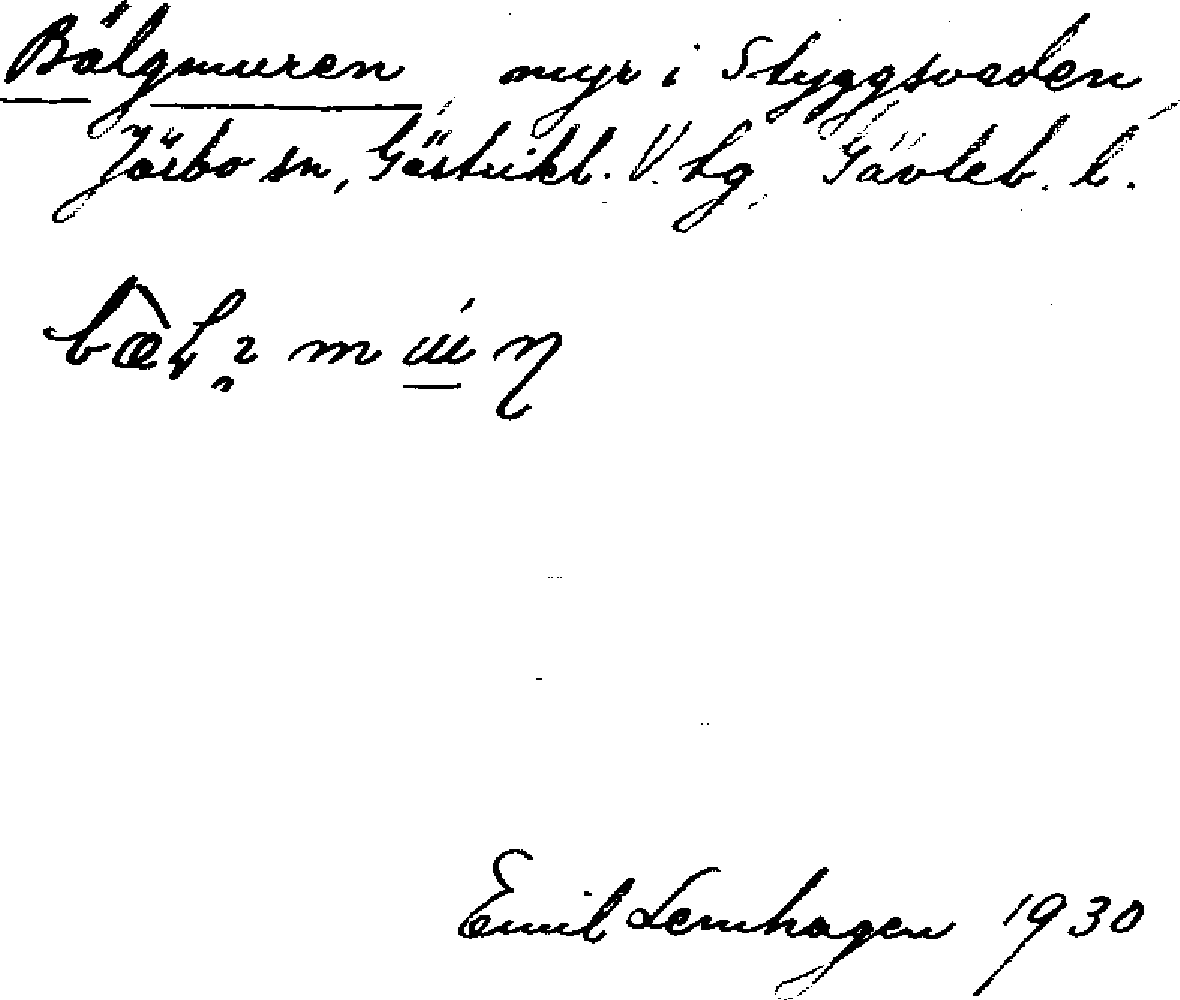 Bälgmuren, myr i Styggsveden,
Järbo sn, Gästrikl. V. tg, Gävleb. l.
Emil Lernhagen 1930